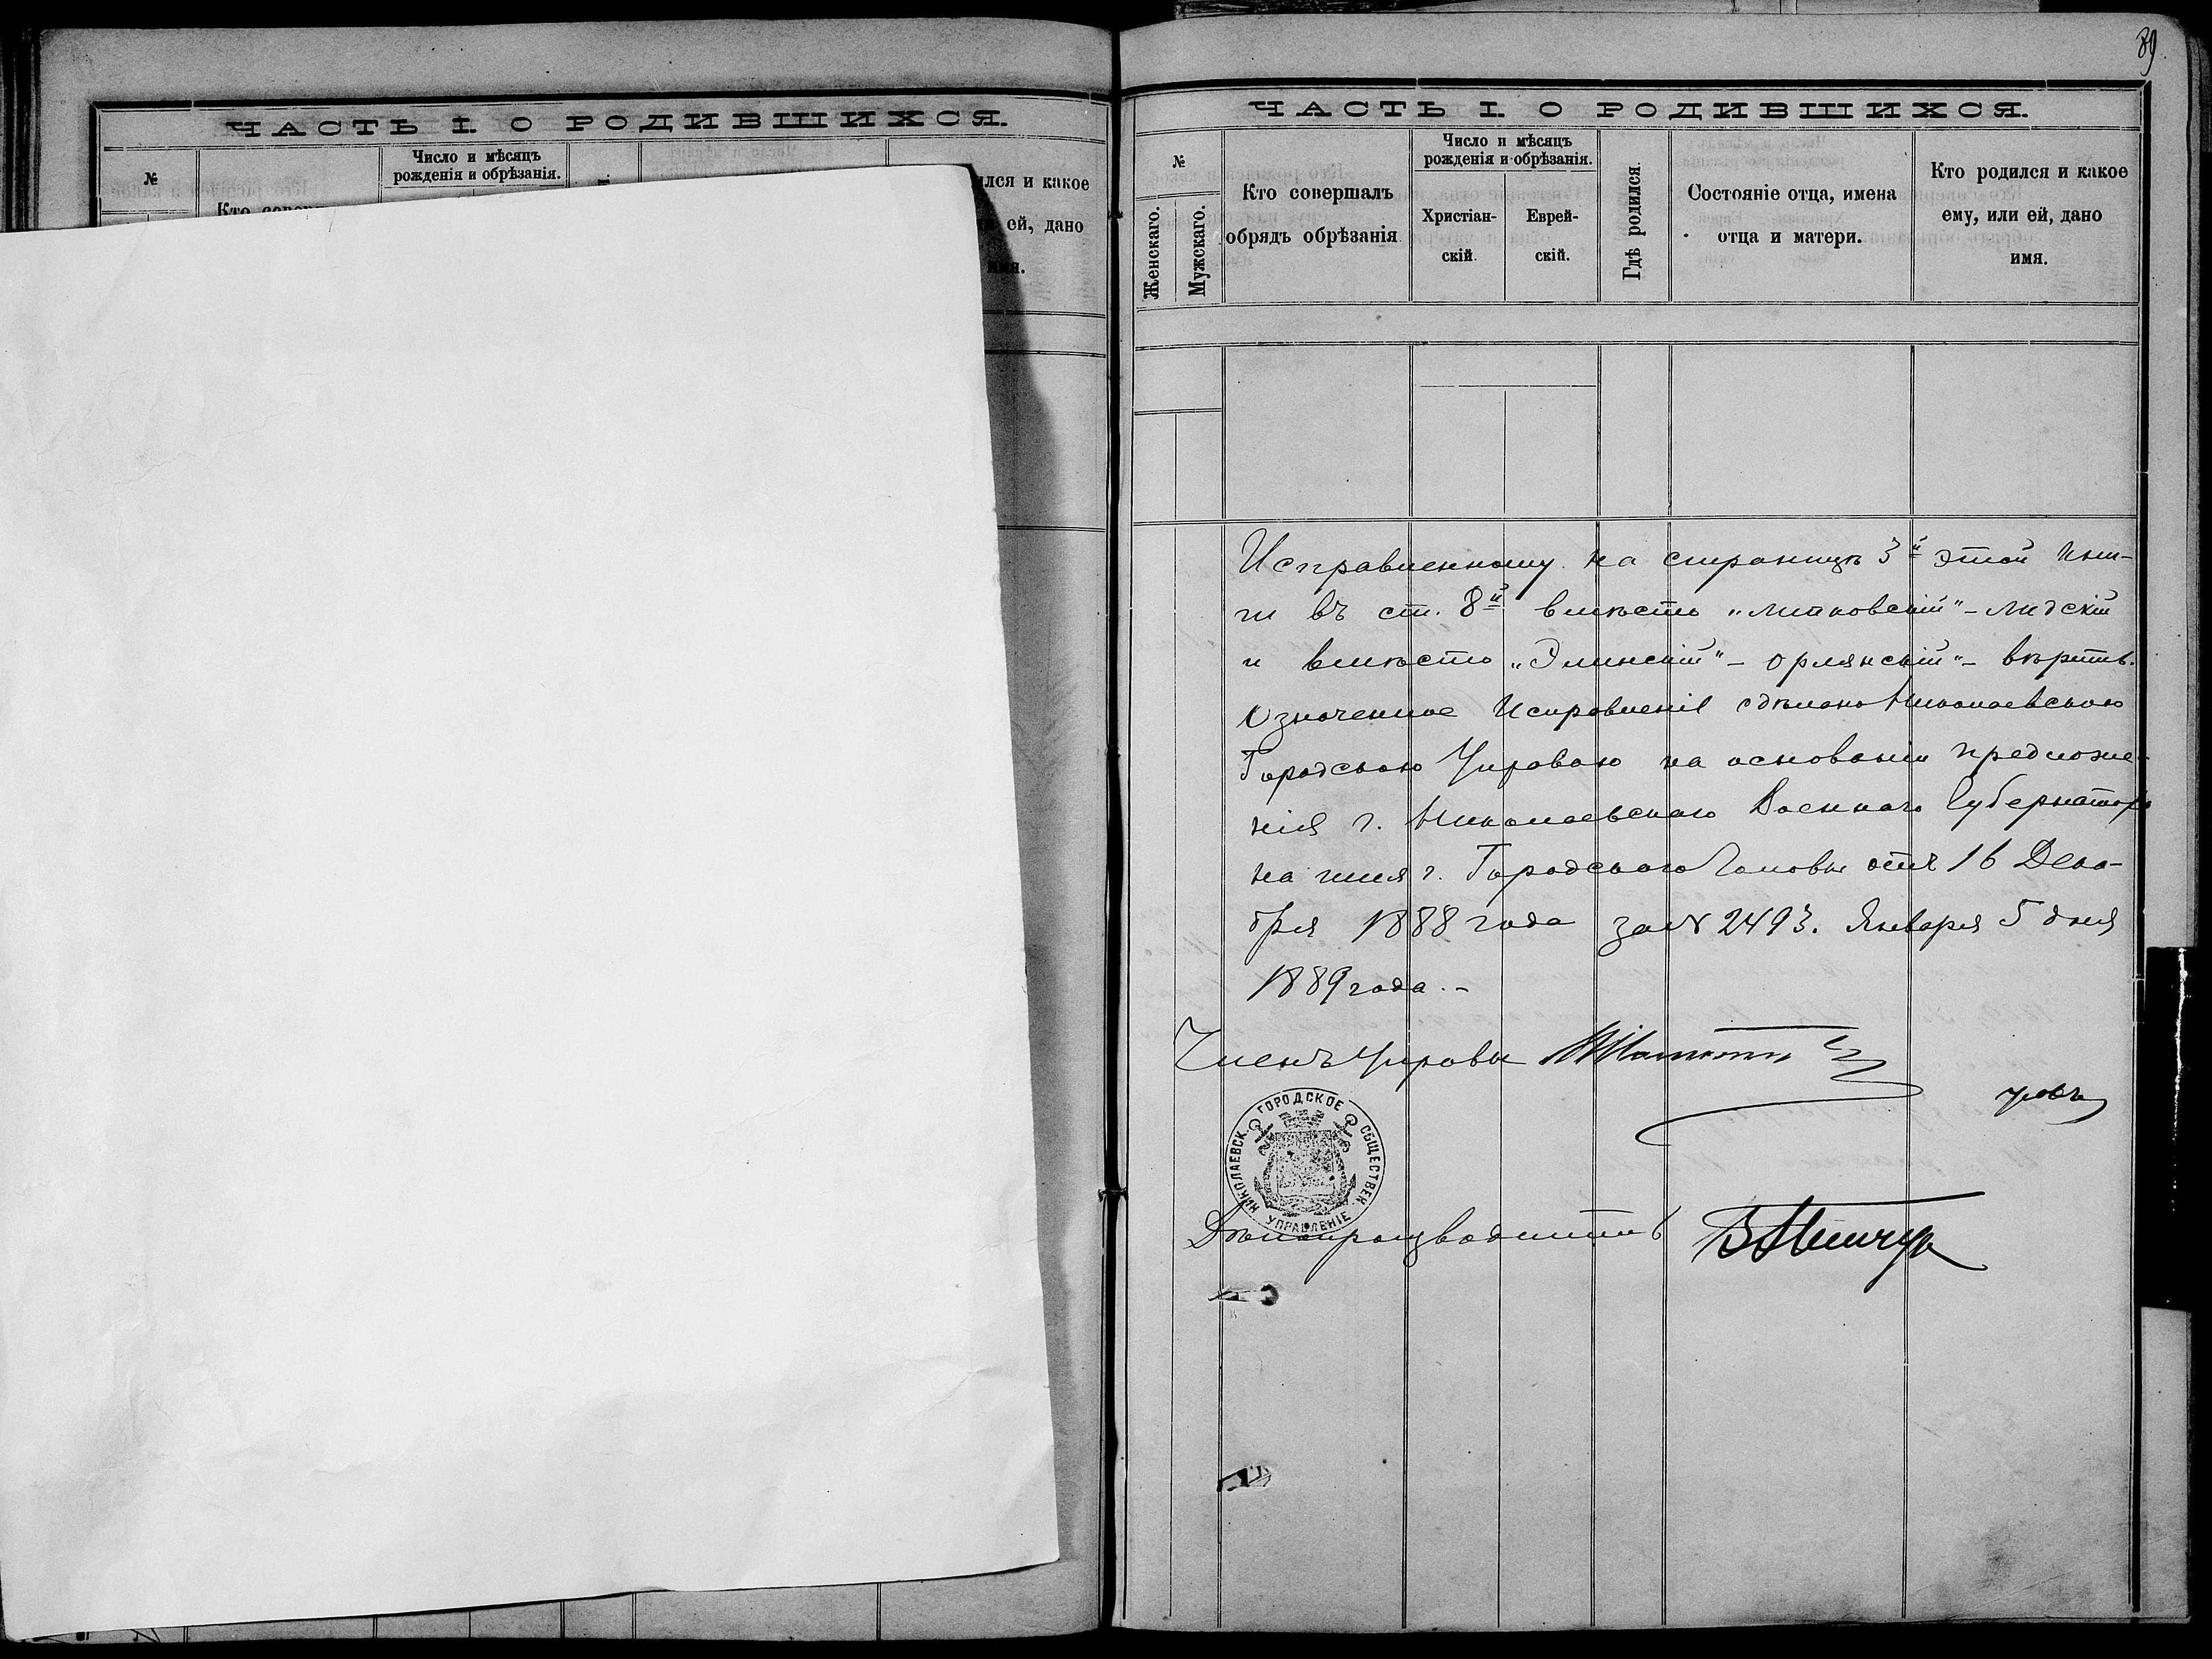 ЧАСТЬ I. О РОДИВШИХСЯ.
№
Число и мѣсяцъ
рожденія и обрѣзанія.
лся и какое
ей, дано
89
ЧАСТЬ I. О РОДИВШИХСЯ.
№
Женскаго.
Мужскаго.
Кто совершалъ
обрядъ обрѣзанія
Число и мѣсяцъ
рожденія и обрѣзанія.
Христіан-
скій.
Еврей-
скій.
Гдѣ родился.
Состояніе отца, имена
отца и матери.
Кто родился и какое
ему, или ей, дано
имя.
Исправленному на страницѣ 3й этой кни-
ги въ ст. 8й вмѣсто „Липковскій" - Лидскій
и вмѣсто „Элинскій" - Орлянскій" - вѣрить.
Означенное Исправленіе сдѣлано Николаевскою
Городскою Управою на основаніи предложе-
нія г. Николаевскаго Военнаго Губернатора
на имя г. Городскаго Головы отъ 16 Дека-
бря 1888 года за № 2493. Января 5 дня
1889 года. -
Членъ Управы
НИКОЛАЕВСК. ГОРОДСКОЕ ОБЩЕСТВЕН. УПРАВЛЕНІЕ
Дѣлопроизводитель